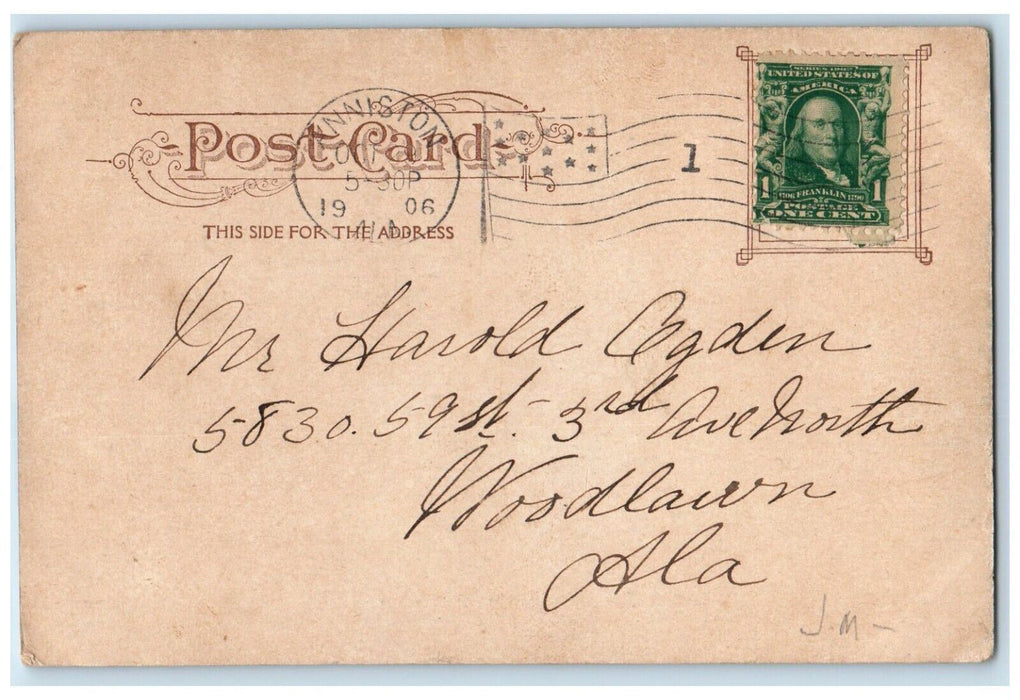 Post Card
THIS SIDE FOR THE ADDRESS
ANNISTON
5-30P
1906
ALA
1
SERIES 1902
UNITED STATES OF
AMERICA
1 1706 FRANKLIN 1790 1
POSTAGE
ONE CENT
Mr Harold Ogden
5830. 59 st. - 3rd Ave North
Woodlawn
Ala
J.M-